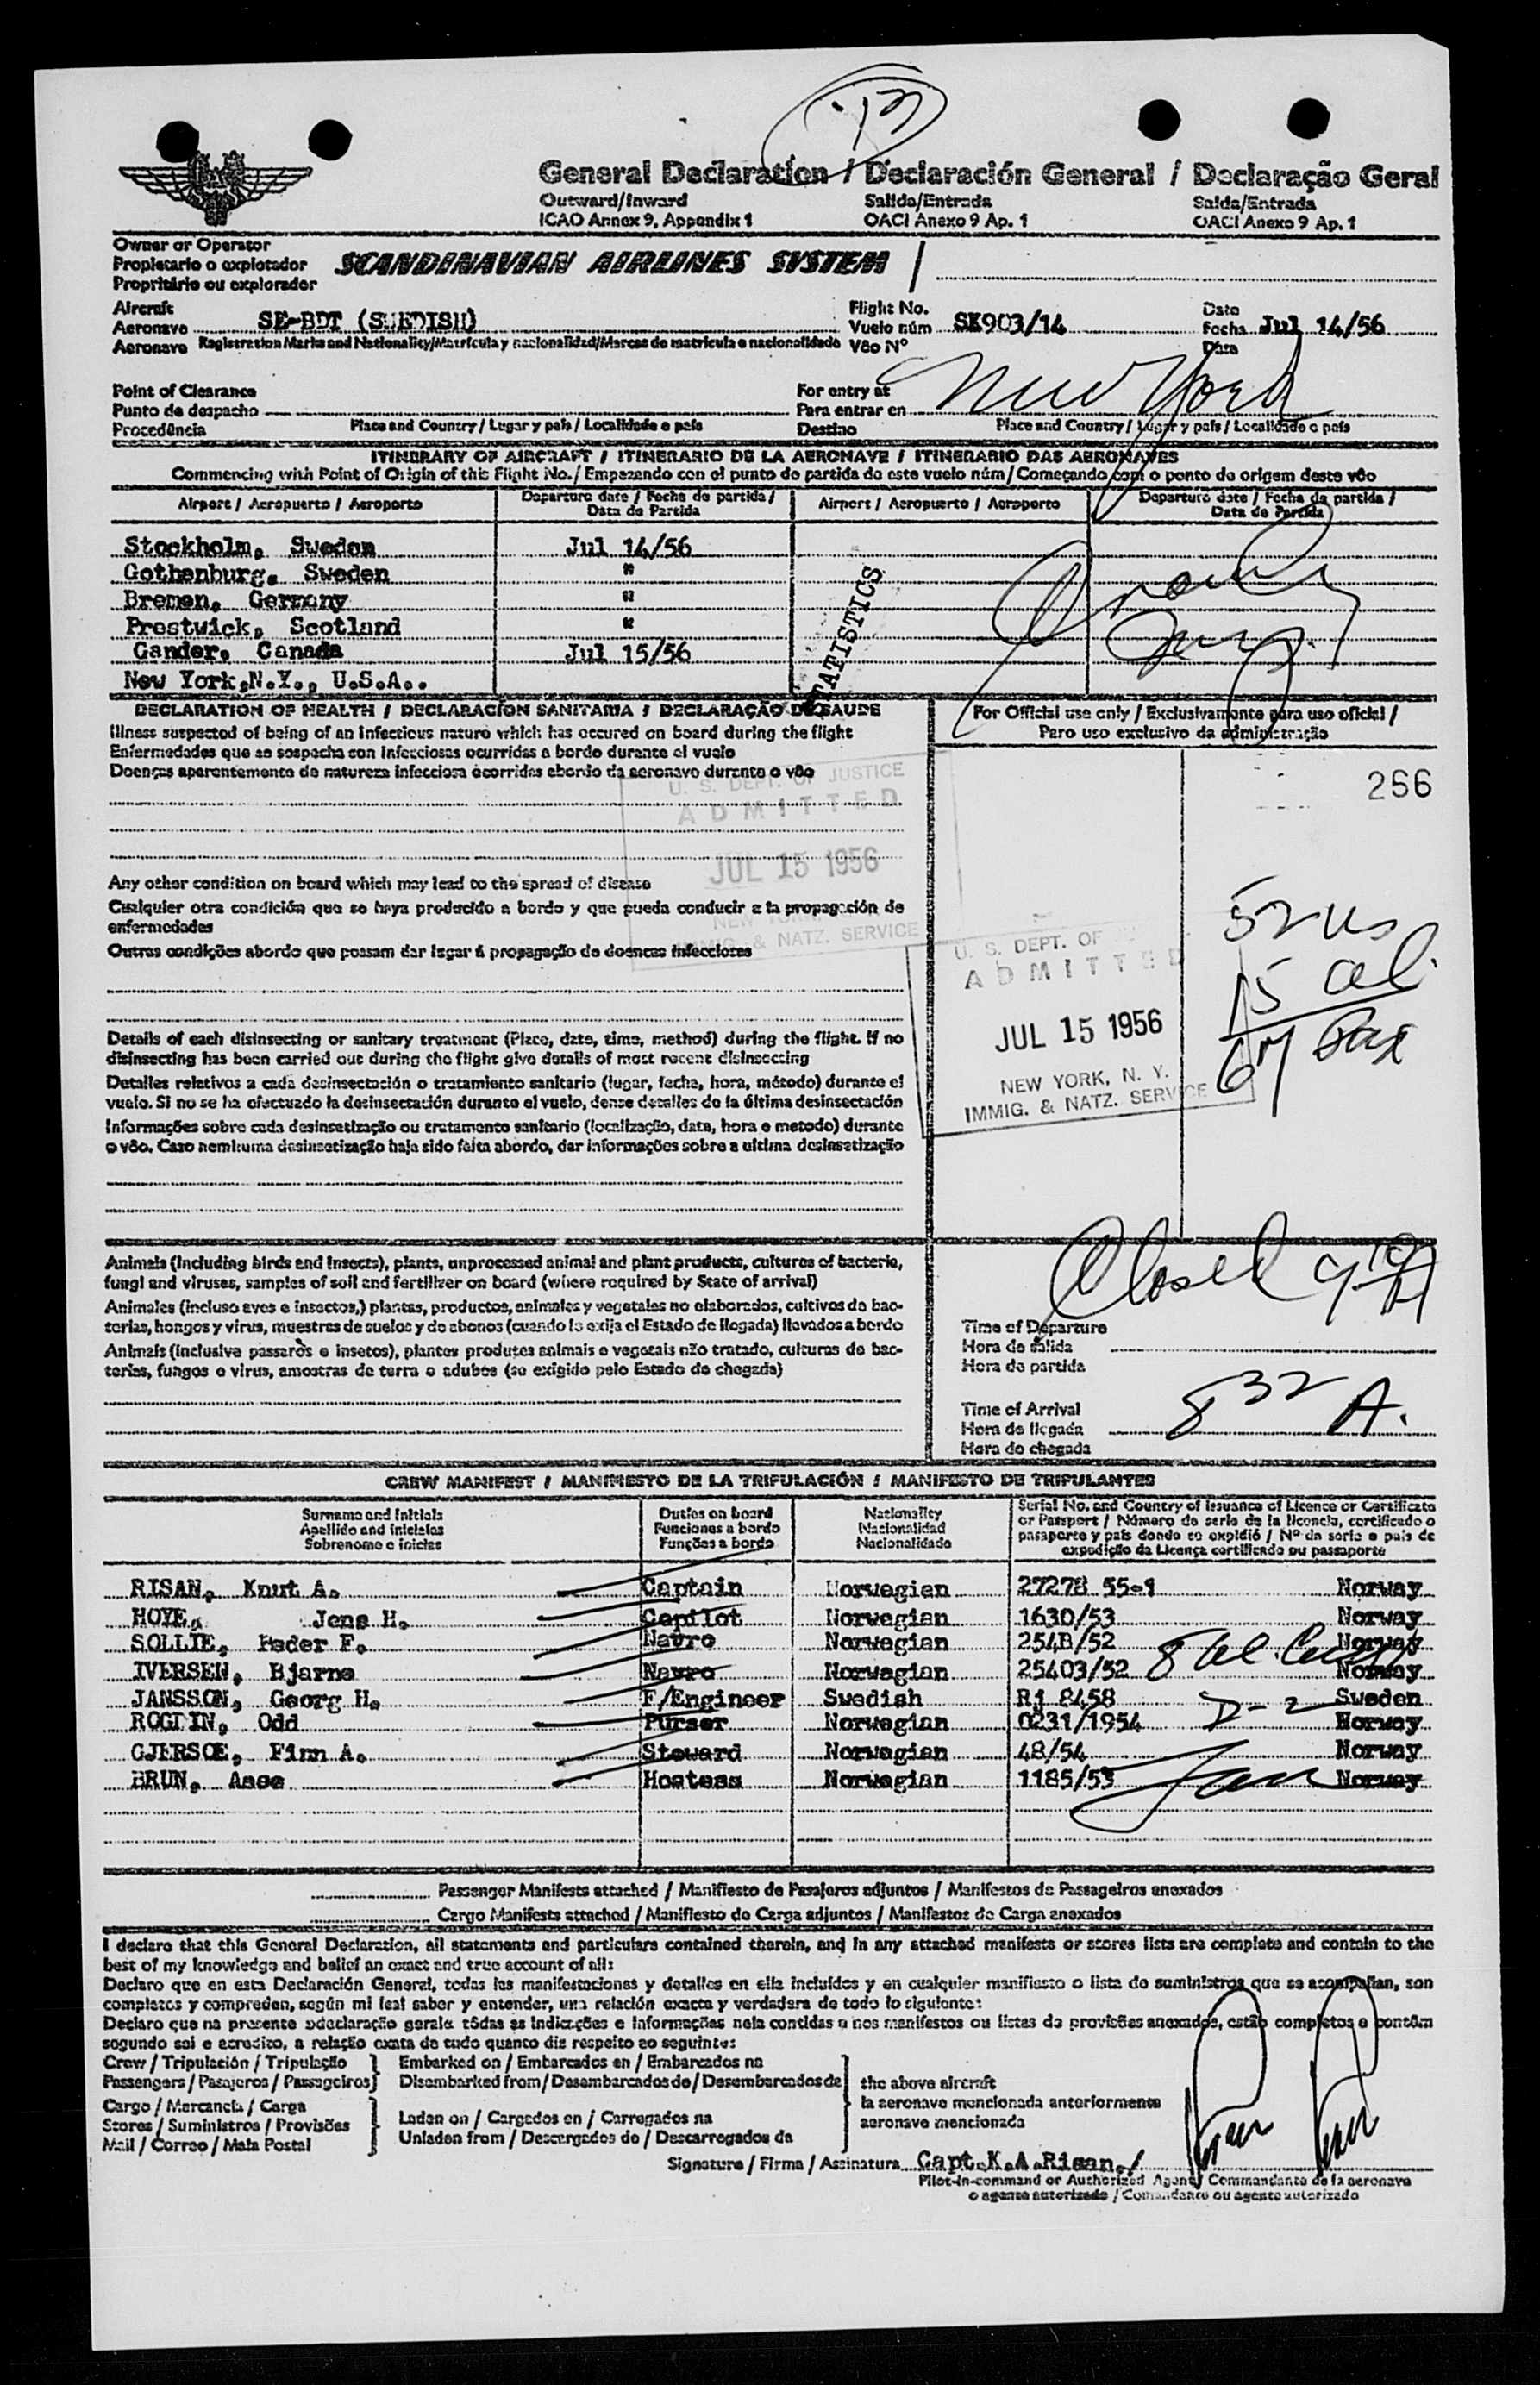 General Declaration / Declaración General / Declaração Geral
Outward/Inward Salida/Entrada Saida/Entrada
ICAO Annex 9, Appendix 1 OACI Anexo 9 Ap. 1 OACI Anexo 9 Ap. 1
Owner or Operator
Propietario o explotador SCANDINAVIAN AIRLINES SYSTEM /
Propritário ou explorador
Aircraft Flight No. Date
Aeronave SE-BDT (SWEDISH) Vuelo núm SK903/14 Fecha Jul 14/56
Aeronave Registration Marks and Nationality/Matrícula y nacionalidad/Marcas de matricula e nacionalidade Vôo Nº Data
Point of Clearance For entry at New York
Punto de despacho Para entrar en
Procedência Place and Country / Lugar y país / Localidade e país Destino Place and Country / Lugar y país / Localidade o país
ITINERARY OF AIRCRAFT / ITINERARIO DE LA AERONAVE / ITINERARIO DAS AERONAVES
Commencing with Point of Origin of this Flight No./ Empezando con el punto de partida de este vuelo núm/ Começando com o ponto do origem deste vôo
Airport / Aeropuerto / Aeroporto Departure date / Fecha de partida / Data de Partida Airport / Aeropuerto / Aeroporto Departure date / Fecha de partida / Data de Partida
Stockholm, Sweden Jul 14/56
Gothenburg, Sweden "
Bremen, Germany "
Prestwick, Scotland "
Gander, Canada Jul 15/56
New York,N.Y., U.S.A..
STATISTICS
DECLARATION OF HEALTH / DECLARACÍON SANITARIA / DECLARAÇÃO DE SAUDE
For Official use only / Exclusivamente para uso oficial /
Para uso exclusivo da administração
Illness suspected of being of an infectious nature which has occured on board during the flight
Enfermedades que se sospecha son infecciosas ocurridas a bordo durante el vuelo
Doenças aparentemente de natureza infecciosa ocorridas abordo da aeronave durante o vôo
266
U. S. DEPT. OF JUSTICE
ADMITTED
JUL 15 1956
NEW YORK, N. Y.
IMMIG. & NATZ. SERVICE
Any other condition on board which may lead to the spread of disease
Cualquier otra condición que se haya producido a bordo y que pueda conducir a la propagación de
enfermedades
Outras condições abordo que possam dar lugar á propagação de doencas infecciosas
52 US
15 al.
67 Pax
U. S. DEPT. OF
ADMITTED
JUL 15 1956
NEW YORK, N. Y.
IMMIG. & NATZ. SERVICE
Details of each disinsecting or sanitary treatment (Place, date, time, method) during the flight. If no
disinsecting has been carried out during the flight give details of most recent disinsecting
Detalles relativos a cada desinsectación o tratamiento sanitario (lugar, fecha, hora, método) durante el
vuelo. Si no se ha efectuado la desinsectación durante el vuelo, dense detalles de la última desinsectación
Informações sobre cada desinsetização ou tratamento sanitario (localização, data, hora e metodo) durante
o vôo. Caso nemhuma desinsetização haja sido feita abordo, dar informações sobre a ultima desinsetização
Animals (including birds and insects), plants, unprocessed animal and plant products, cultures of bacteria,
fungi and viruses, samples of soil and fertilizer on board (where required by State of arrival)
Animales (incluso aves e insectos,) plantas, productos, animales y vegetales no elaborados, cultivos de bac-
terias, hongos y virus, muestras de suelos y de abonos (cuando lo exija el Estado de llegada) llevados a bordo
Animais (inclusive passaros e insetos), plantas produtos animais e vegetais não tratado, culturas de bac-
terias, fungos e virus, amostras de terra e adubos (se exigido pelo Estado de chegada)
Closed 9 10 A
Time of Departure
Hora de salida
Hora de partida
Time of Arrival 8 32 A.
Hora de llegada
Hora de chegada
CREW MANIFEST / MANIFIESTO DE LA TRIPULACIÓN / MANIFESTO DE TRIPULANTES
Surname and Initials Duties on board Nationality Serial No. and Country of Issuance of Licence or Certificate
Apellido and iniciales Funciones a bordo Nacionalidad or Passport / Número de serie de la licencia, certificado o
Sobrenome e iniciaes Funções a bordo Nacionalidade pasaporte y país donde se expidió / Nº da serie e pais de
expedição da Licença certificado ou passaporte
RISAN, Knut A. Captain Norwegian 27278 55-1 Norway
HOYE, Jens H. Copilot Norwegian 1630/53 Norway
SOLLIE, Peder F. Navro Norwegian 254B/52 Norway
IVERSEN, Bjarne Navro Norwegian 25403/52 Norway
JANSSON, Georg H. F/Engineer Swedish Rj 8458 Sweden
ROGDIN, Odd Purser Norwegian 0231/1954 Norway
GJERSOE, Finn A. Steward Norwegian 48/54 Norway
BRUN, Aase Hostess Norwegian 1185/53 Norway
8 al. Crew
D-2
Passenger Manifests attached / Manifiesto de Pasajeros adjuntos / Manifestos de Passageiros anexados
Cargo Manifests attached / Manifiesto de Carga adjuntos / Manifestos de Carga anexados
I declare that this General Declaration, all statements and particulars contained therein, and in any attached manifests or stores lists are complete and contain to the
best of my knowledge and belief an exact and true account of all:
Declaro que en esta Declaración General, todas las manifestaciones y detalles en ella incluídos y en cualquier manifiesto o lista de suministros que se acompañan, son
completos y compreden, según mi leal saber y entender, una relación exacta y verdadera de todo lo siguiente:
Declaro que na presente adeclaração gerale tôdas as indicações e informações nela contidas e nos manifestos ou listas de provisões anexados, estão completos e contêm
segundo sei e acredito, a relação exata de tudo quanto diz respeito ao seguinte:
Crew / Tripulación / Tripulação Embarked on / Embarcados en / Embarcados na
Passengers / Pasajeros / Passageiros Disembarked from / Desembarcados de / Desembarcados de the above aircraft
Cargo / Mercancía / Carga la aeronave mencionada anteriormente
Stores / Suministros / Provisões Laden on / Cargados en / Carregados na aeronave mencionada
Mail / Correo / Mala Postal Unladen from / Descargados de / Descarregados da
Signature / Firma / Assinatura Capt.K.A.Risan./
Pilot-in-command or Authorized Agent/ Commandante de la aeronave
o agente autorizado / Comandante ou agente autorizado